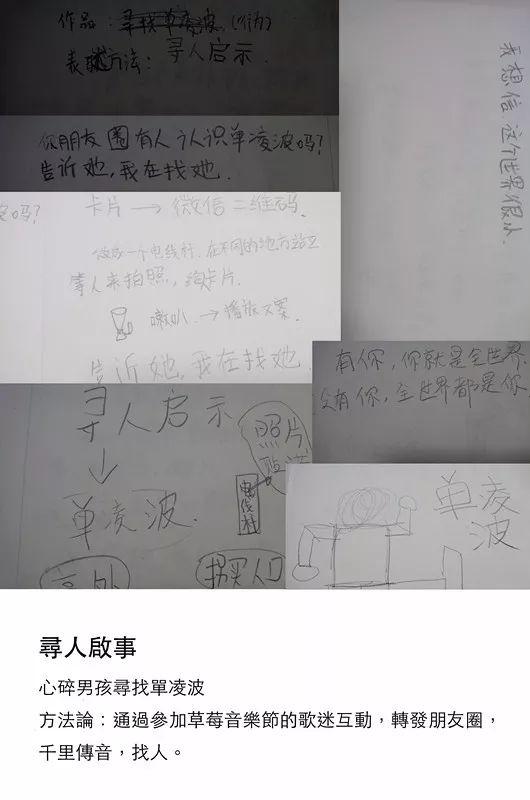 作品：寻找单凌波（行为）
表达方法：寻人启示.
你朋友圈有人认识单凌波吗？
告诉她，我在找她.
我想信这个世界很小.
吗？
卡片→微信二维码.
做成一个电线杆.在不同的地方站立
等人来拍照，给卡片.
喇叭.→播放文案.
告诉她，我在找她
有你，你就是全世界
没有你，全世界都是你
寻人启示
单凌波.
照片
电线杆
意外
拐买人口
单凌
波
尋人啟事
心碎男孩尋找單凌波
方法論：通過參加草莓音樂節的歌迷互動，轉發朋友圈，
千里傳音，找人。